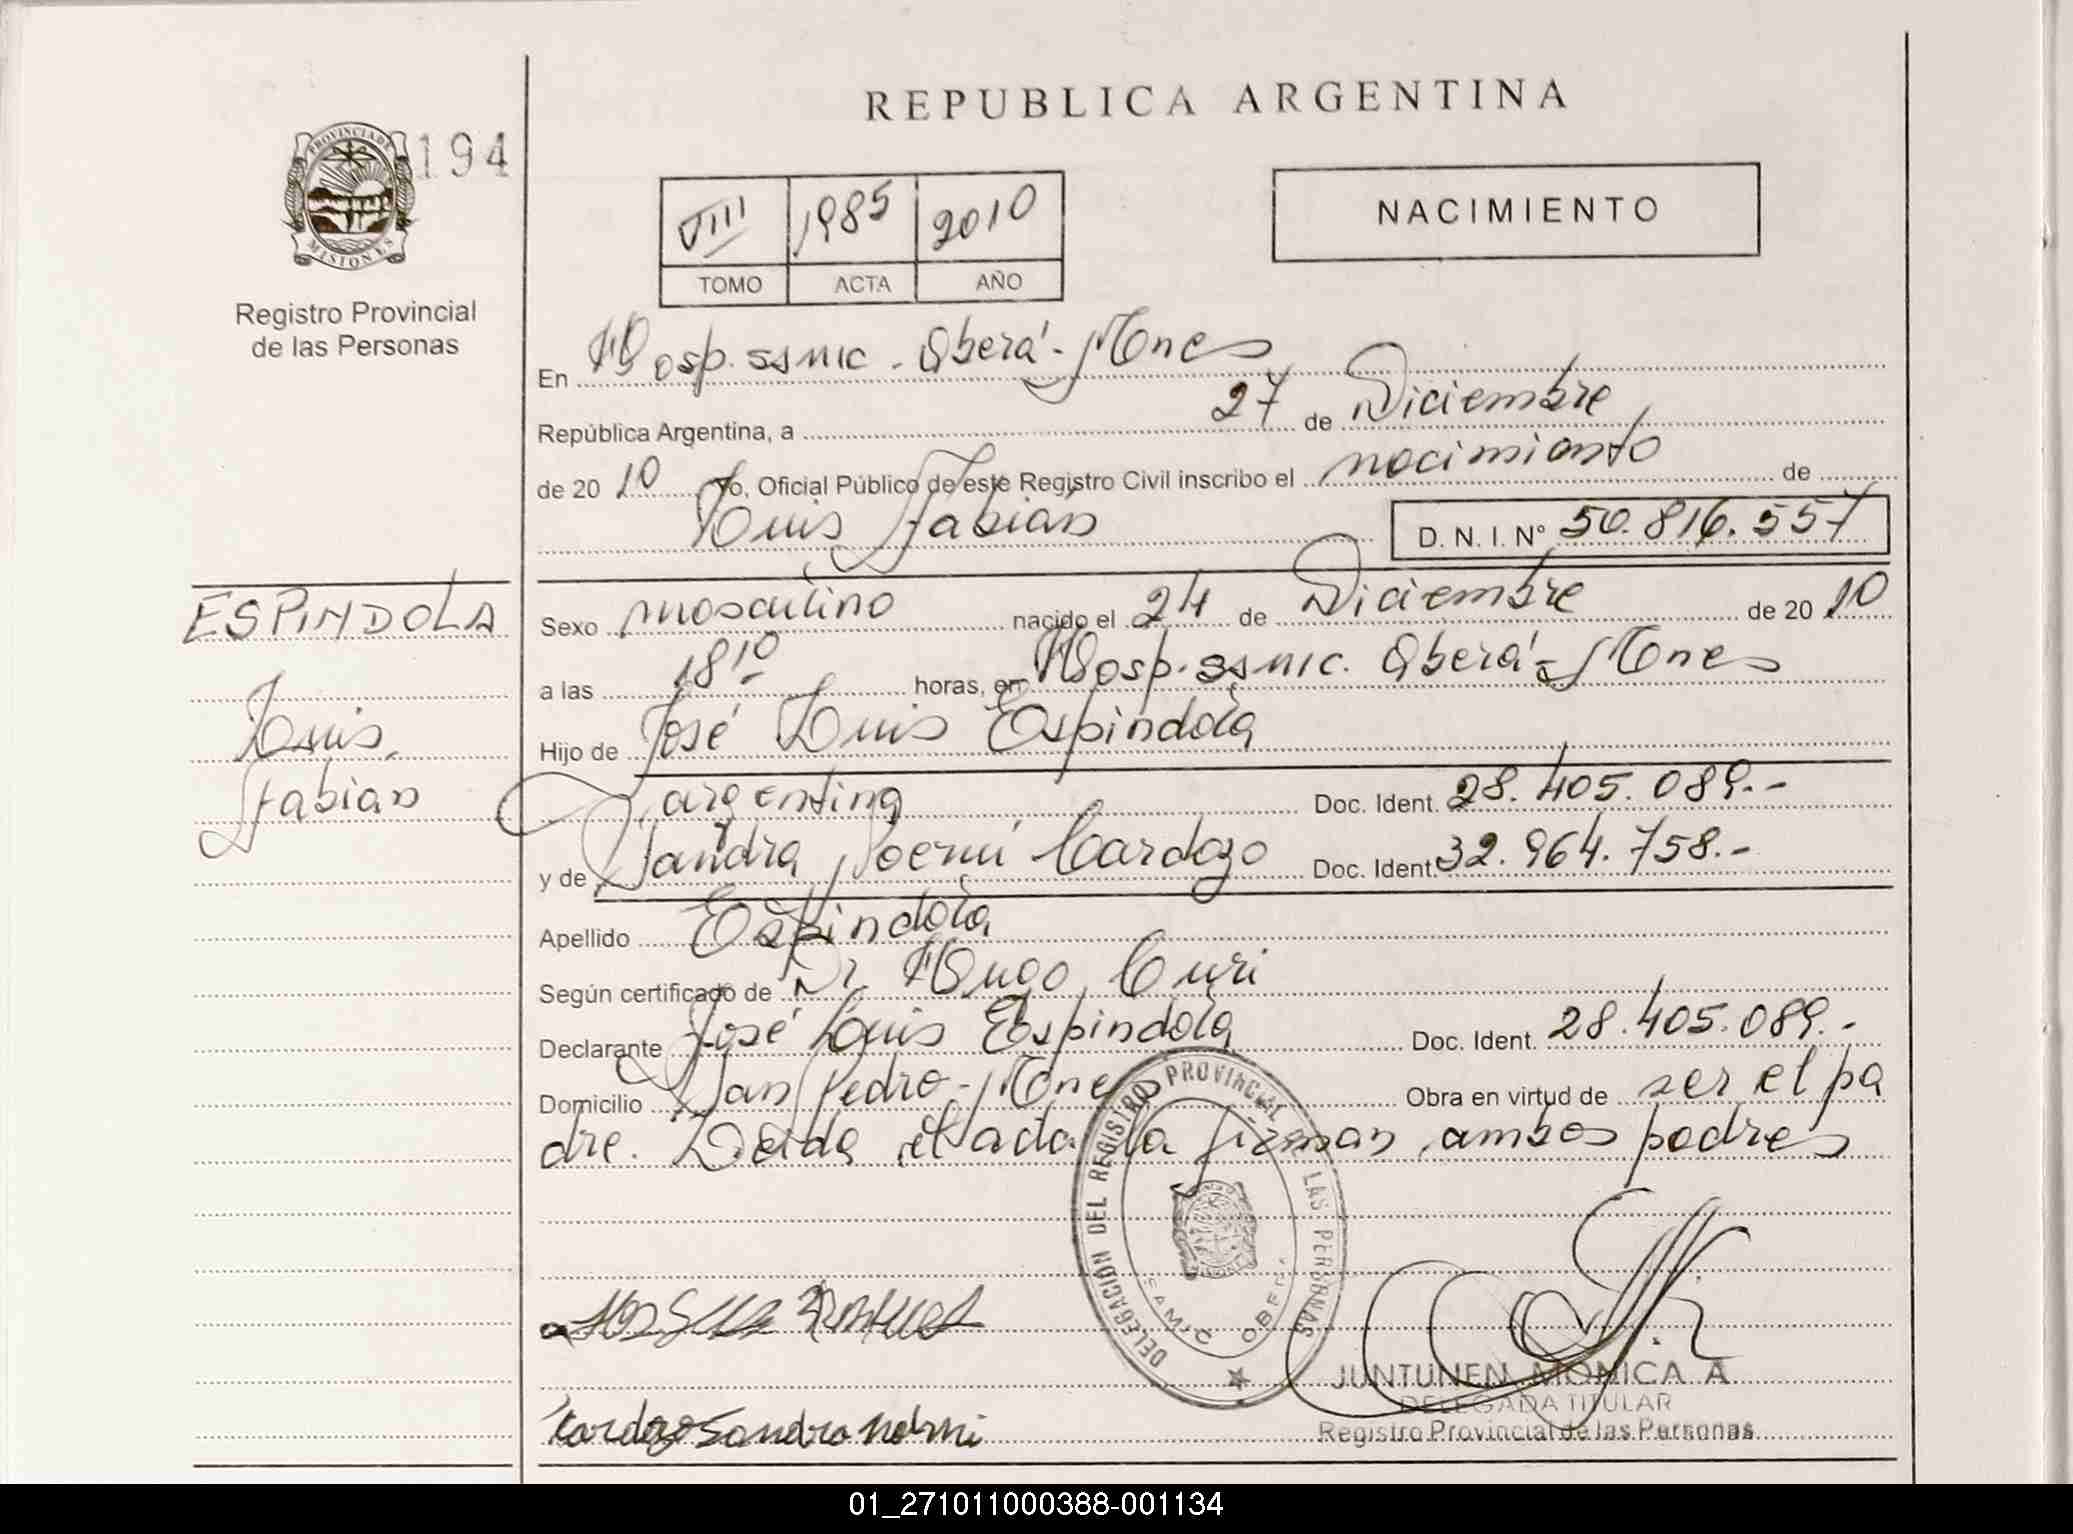 REPUBLICA ARGENTINA
PROVINCIA DE MISIONES
194
Registro Provincial
de las Personas
VIII 1985 2010
TOMO ACTA AÑO
NACIMIENTO
En Hosp. SAMIC. Oberá - Mnes
República Argentina, a 27 de Diciembre
de 2010 Yo, Oficial Público de este Registro Civil inscribo el nacimiento de
Luis Fabián D. N. I. N° 50.816.557
ESPINDOLA
Luis
Fabián
Sexo masculino nacido el 24 de Diciembre de 2010
a las 18 10 horas, en Hosp. SAMIC. Oberá - Mnes
Hijo de José Luis Espindola
argentina Doc. Ident. 28.405.089.-
y de Sandra Noemí Cardozo Doc. Ident. 32.964.758.-
Apellido Espindola
Según certificado de Dr. Hugo Curi
Declarante José Luis Espindola Doc. Ident. 28.405.089.-
Domicilio San Pedro - Mnes Obra en virtud de ser el pa
dre. Leída el acta la firman ambos padres
DELEGACIÓN DEL REGISTRO PROVINCIAL LAS PERSONAS
SAMIC OBERA
Cardozo Sandra Noemi
JUNTUNEN MONICA A
DELEGADA TITULAR
Registro Provincial de las Personas
01_271011000388-001134